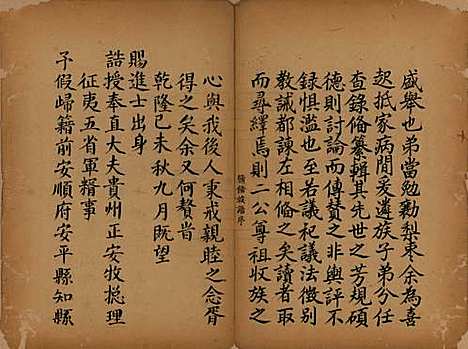 盛舉也弟當勉勷梨棗余為喜
起抵家病間爰遴族子弟分任
查錄俻纂輯其先世之芳規碩
德則討論而傳贊之非輿評不
録惧濫也至若議祀議法徴别
教誡都諫左相俻之矣讀者取
而尋繹焉則二公尊祖收族之
心與我後人東戒親睦之念胥
得之矣余又何贅耑
乾隆己未秋九月既望
賜進士出身
誥授奉直大夫貴州正安牧摠理
征夷五省軍糈事
予假歸籍前安順府安平縣知縣